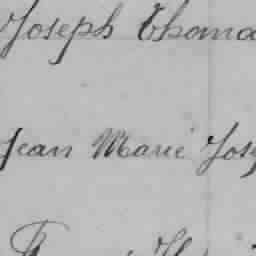 Joseph Thoma
Jean Marie Jos